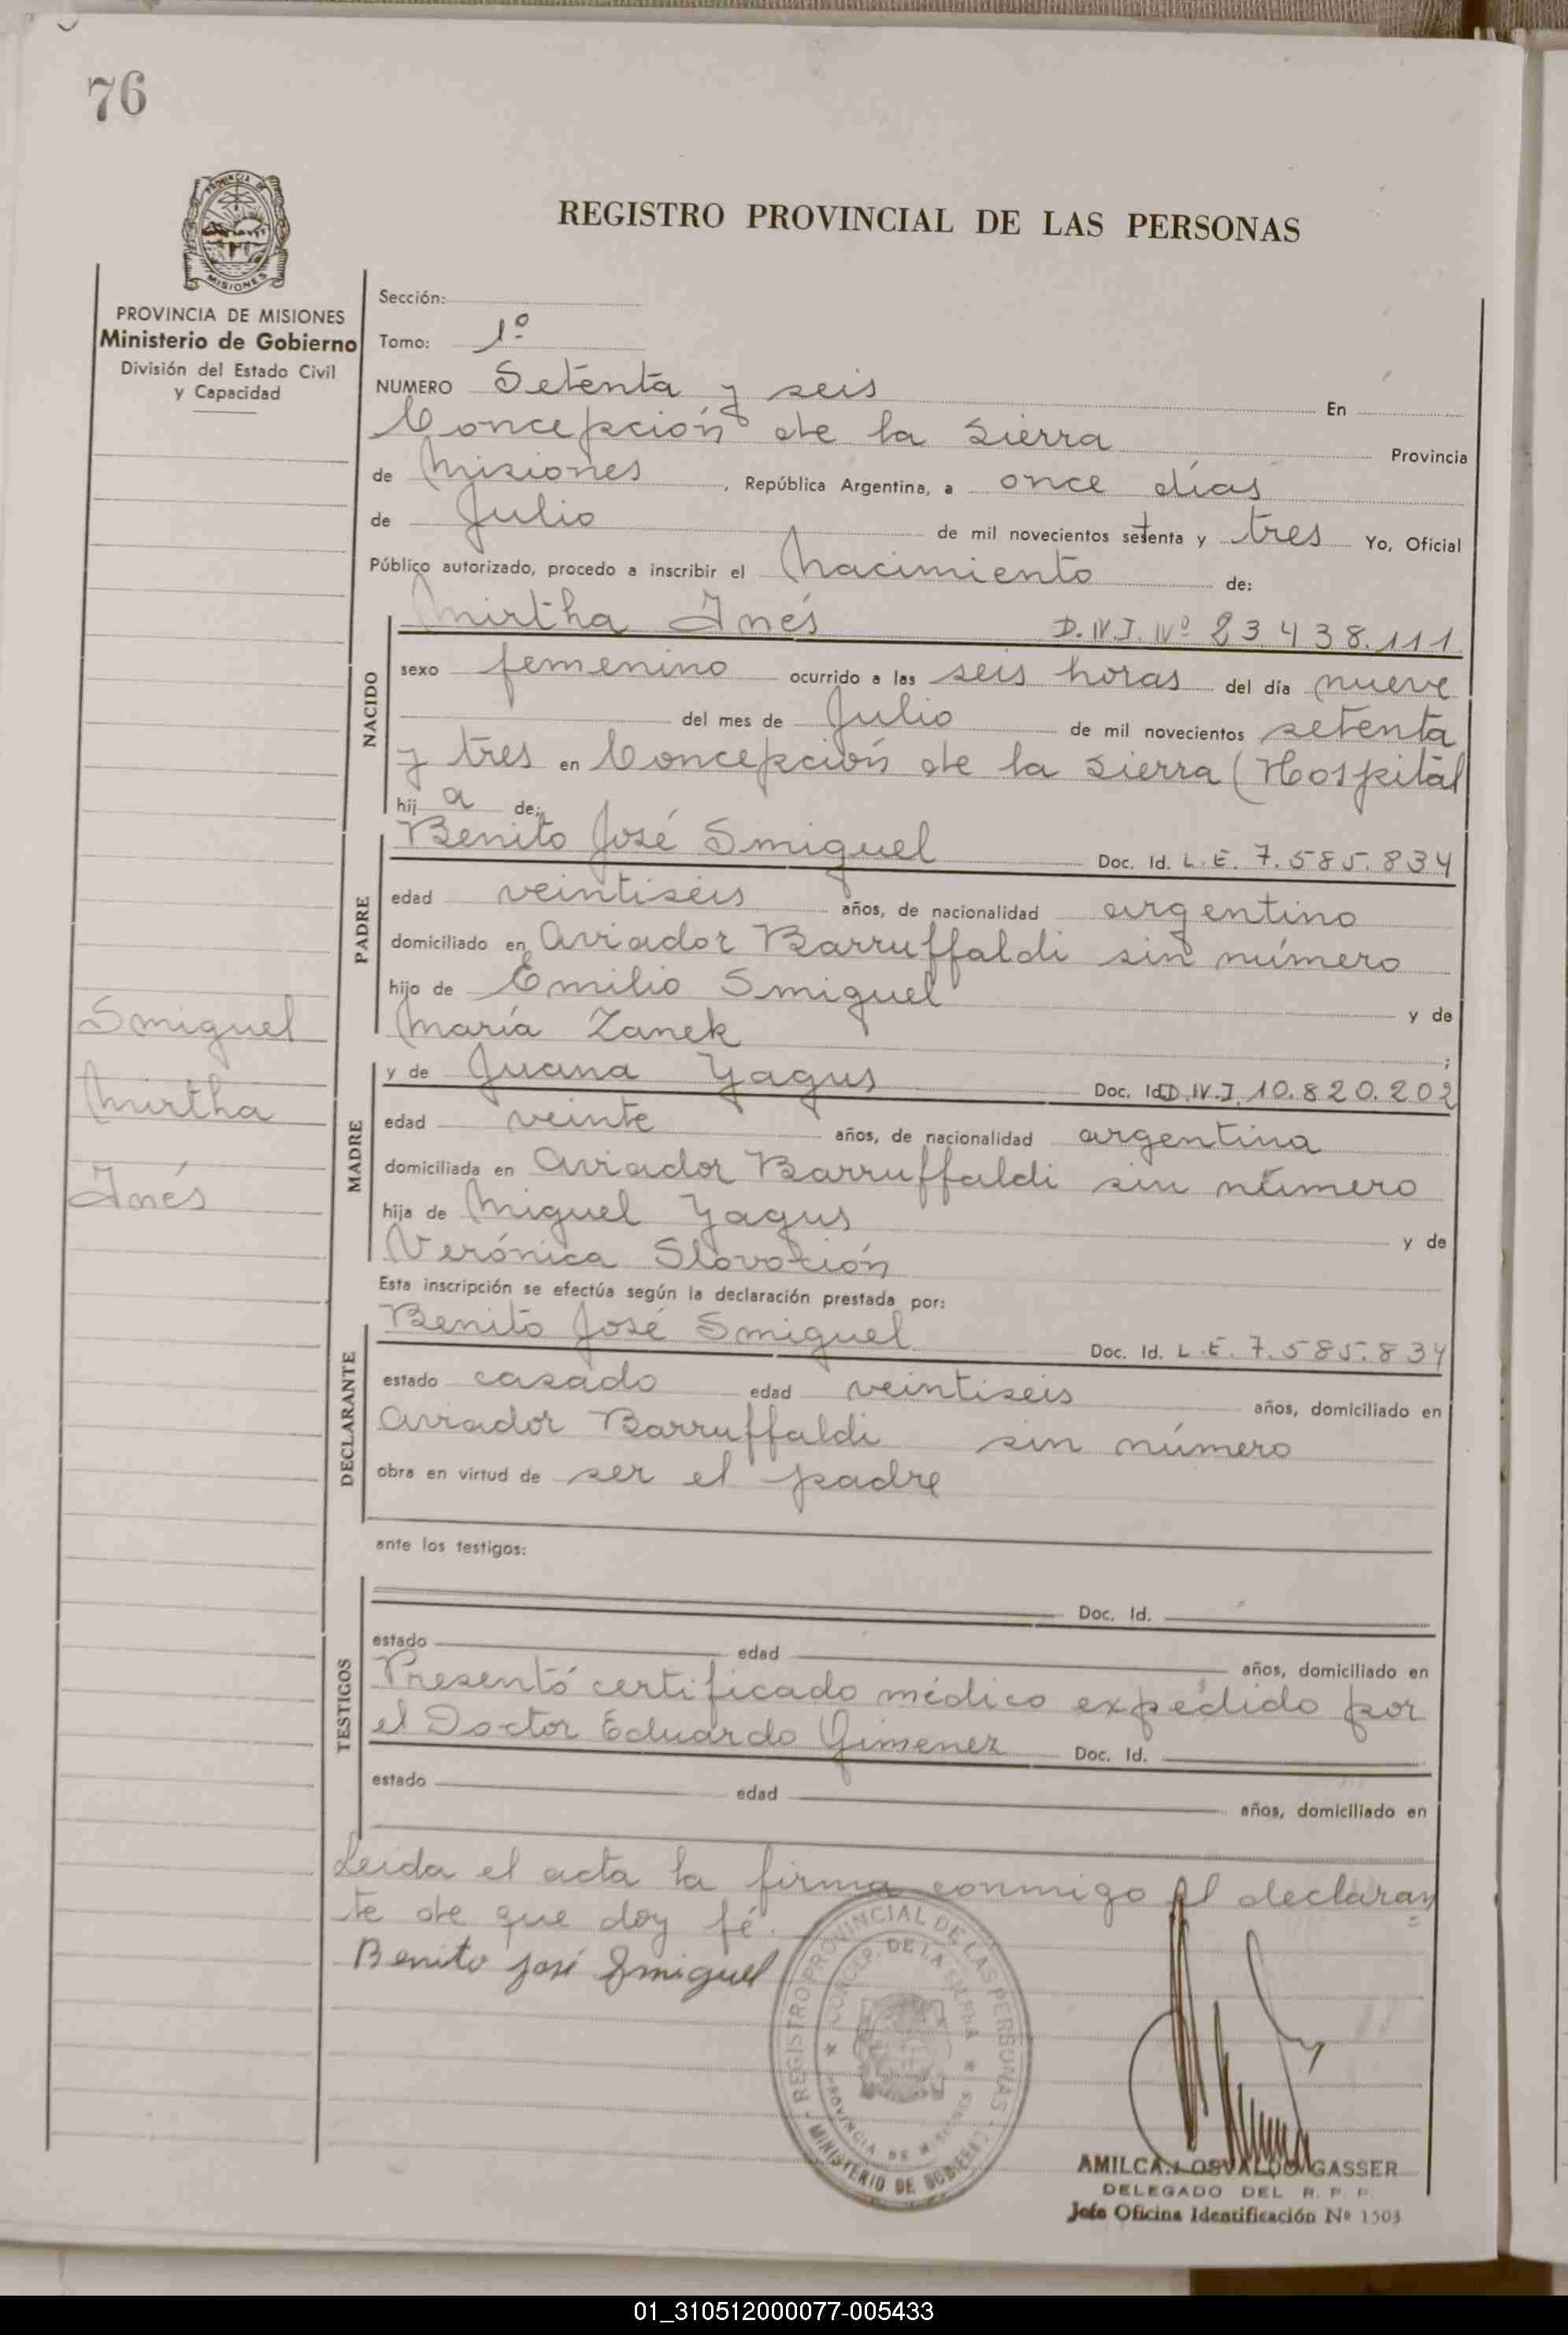 76
PROVINCIA DE
MISIONES
REGISTRO PROVINCIAL DE LAS PERSONAS
PROVINCIA DE MISIONES
Ministerio de Gobierno
División del Estado Civil
y Capacidad
Sección:
Tomo: 1º
NUMERO Setenta y seis En
Concepción de la Sierra Provincia
de Misiones, República Argentina, a once días
de Julio de mil novecientos setenta y tres Yo, Oficial
Público autorizado, procedo a inscribir el Nacimiento de:
NACIDO
Mirtha Inés D.N.I. Nº 23.438.111
sexo femenino ocurrido a las seis horas del día nueve
del mes de Julio de mil novecientos setenta
y tres en Concepción de la Sierra (Hospital
hij a de:
PADRE
Benito José Smiguel Doc. Id. L.E. 7.585.834
edad veintiséis años, de nacionalidad argentino
domiciliado en Aviador Barruffaldi sin número
hijo de Emilio Smiguel y de
María Zanek ;
Smiguel
Mirtha
Inés
MADRE
y de Juana Yagus Doc. Id. D.N.I. 10.820.202
edad veinte años, de nacionalidad argentina
domiciliada en Aviador Barruffaldi sin número
hija de Miguel Yagus y de
Verónica Slovoción
Esta inscripción se efectúa según la declaración prestada por:
DECLARANTE
Benito José Smiguel Doc. Id. L.E. 7.585.834
estado casado edad veintiseis años, domiciliado en
Aviador Barruffaldi sin número
obra en virtud de ser el padre
ante los testigos:
TESTIGOS
Doc. Id.
estado edad años, domiciliado en
Presentó certificado médico expedido por
el Doctor Eduardo Gimenez Doc. Id.
estado edad años, domiciliado en
Leida el acta la firma conmigo el declaran
te de que doy fé.
Benito José Smiguel
REGISTRO PROVINCIAL DE LAS PERSONAS
CONCEP. DE LA SIERRA
PROVINCIA DE MISIONES
MINISTERIO DE GOBIERNO
AMILCAR OSVALDO GASSER
DELEGADO DEL R. P. P.
Jefe Oficina Identificación Nº 1503
01_310512000077-005433